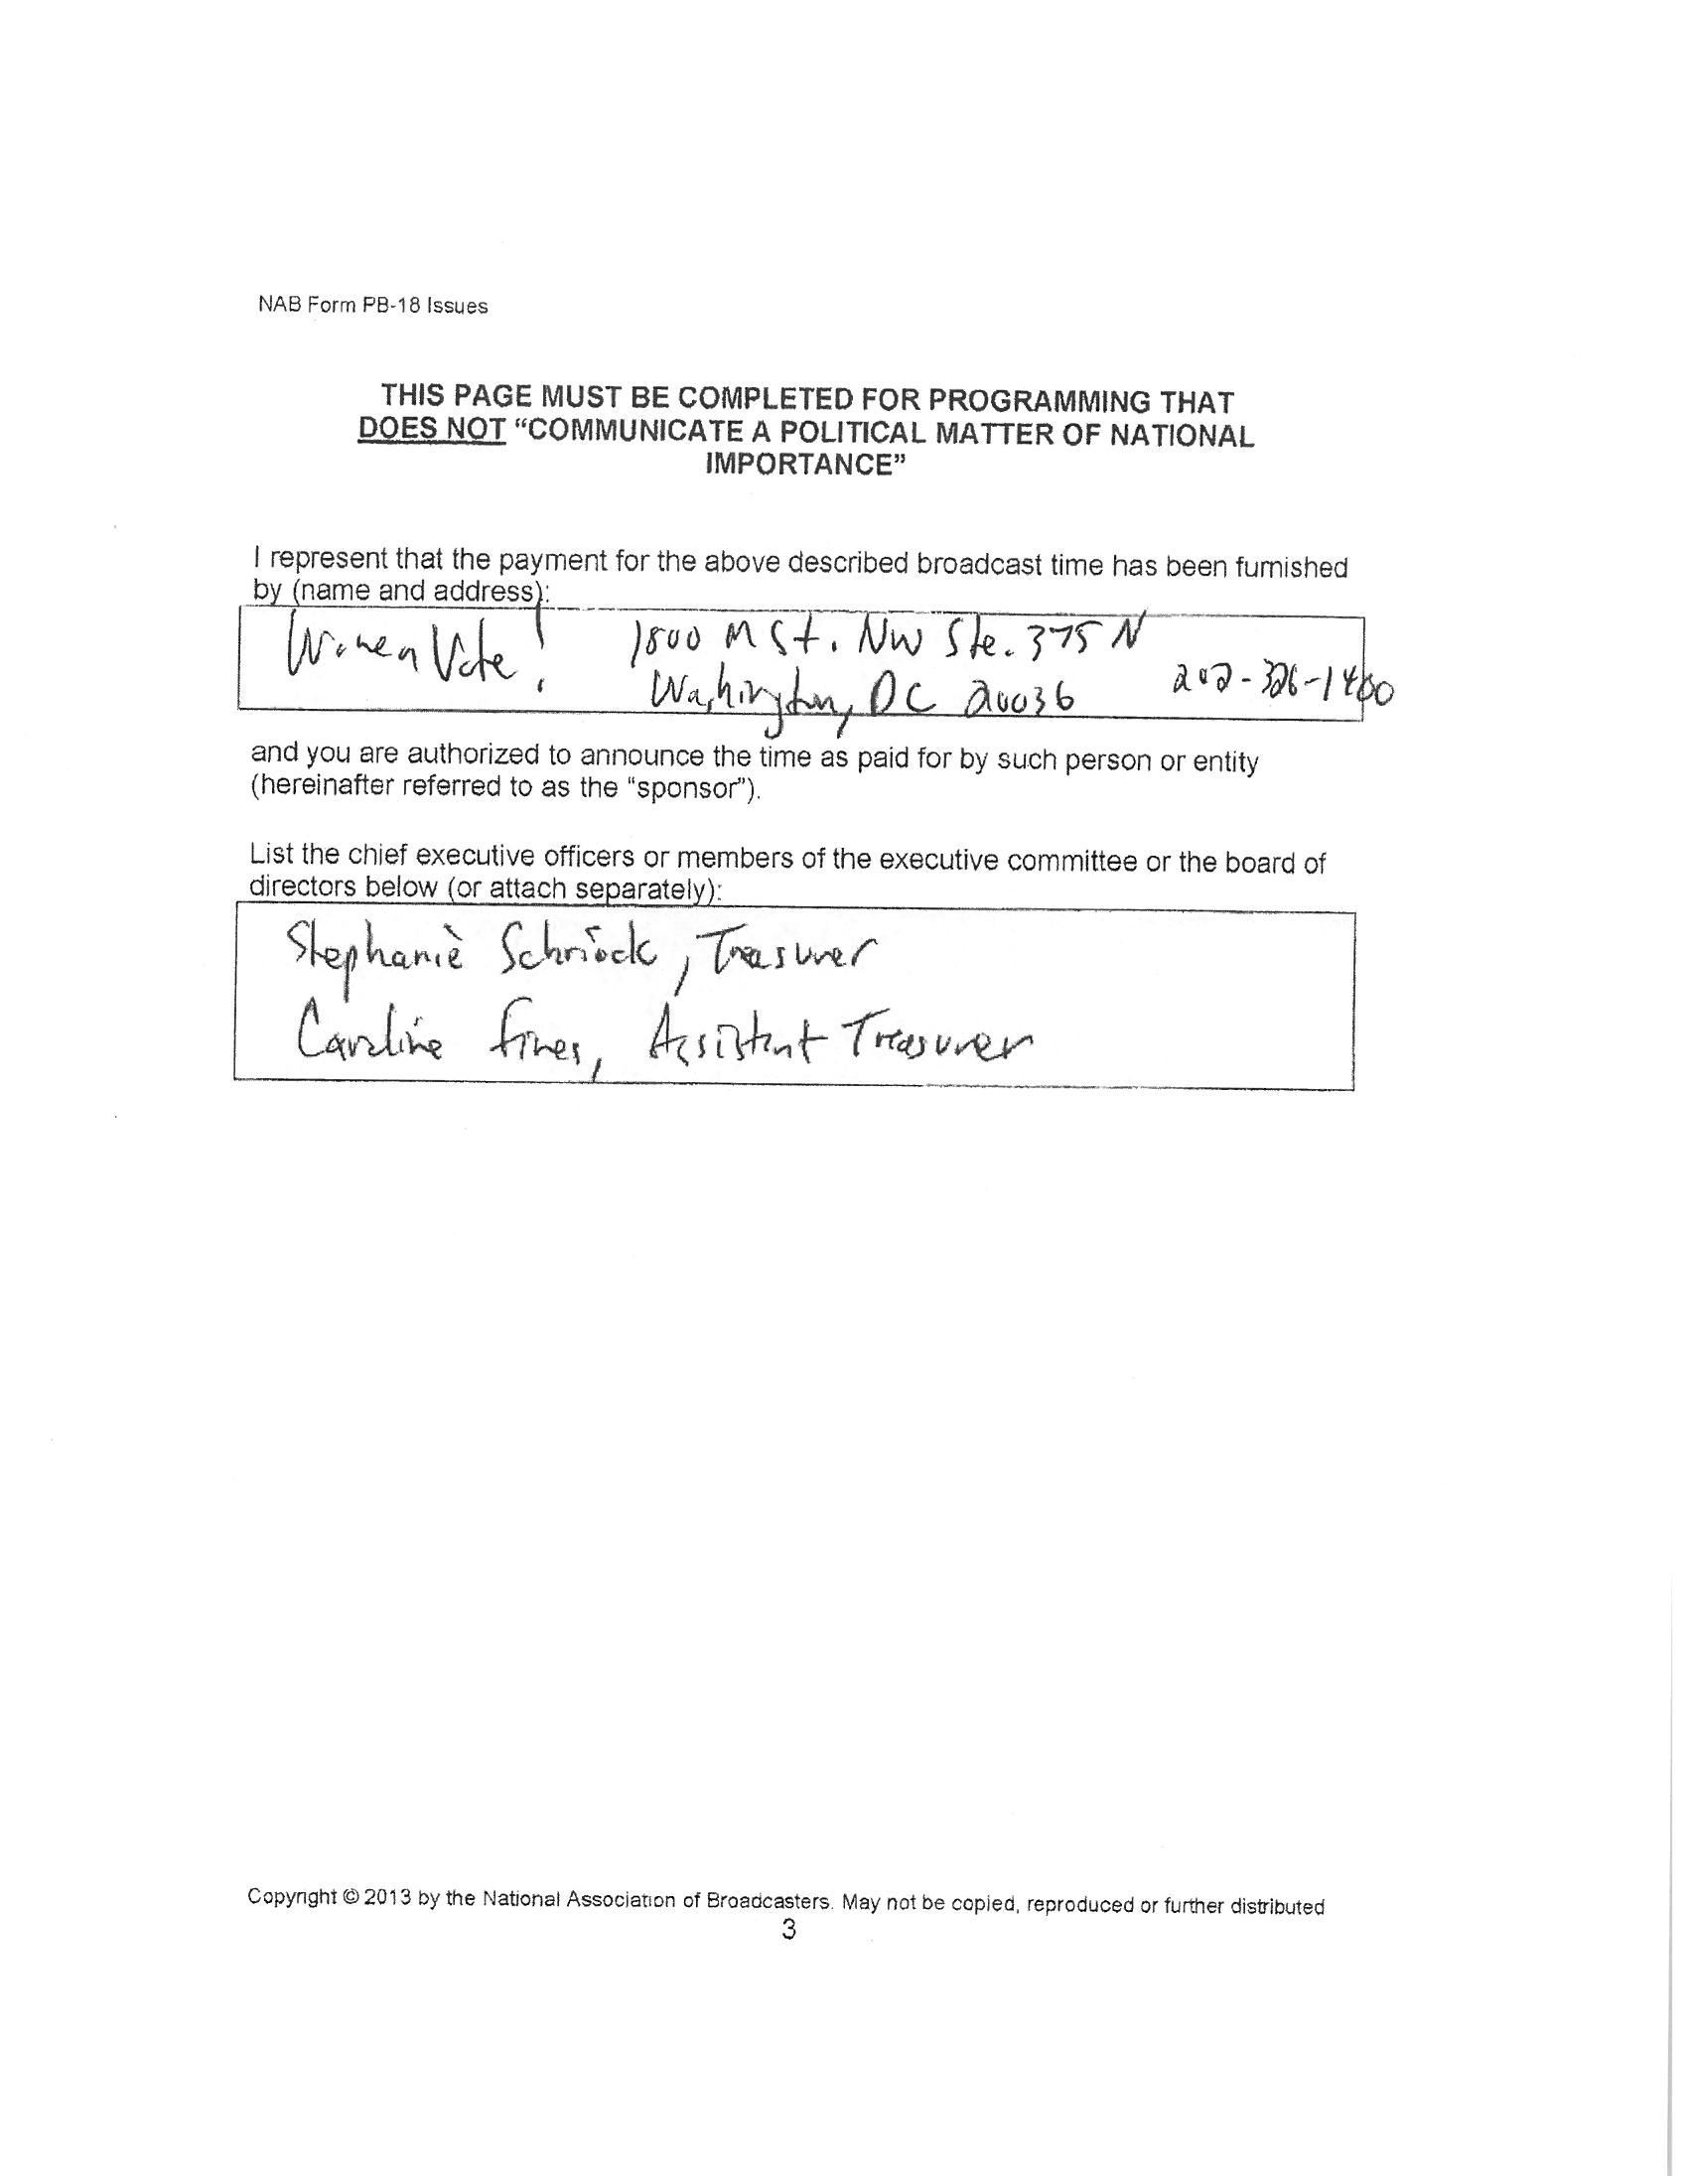 NAB Form PB-18 Issues
THIS PAGE MUST BE COMPLETED FOR PROGRAMMING THAT
DOES NOT “COMMUNICATE A POLITICAL MATTER OF NATIONAL
IMPORTANCE”
I represent that the payment for the above described broadcast time has been furnished
by (name and address):
Women Vote! 1800 M St. NW Ste. 375 N
Washington, DC 20036 202-326-1400
and you are authorized to announce the time as paid for by such person or entity
(hereinafter referred to as the “sponsor”).
List the chief executive officers or members of the executive committee or the board of
directors below (or attach separately):
Stephanie Schriock, Treasurer
Caroline Fines, Assistant Treasurer
Copyright © 2013 by the National Association of Broadcasters. May not be copied, reproduced or further distributed
3